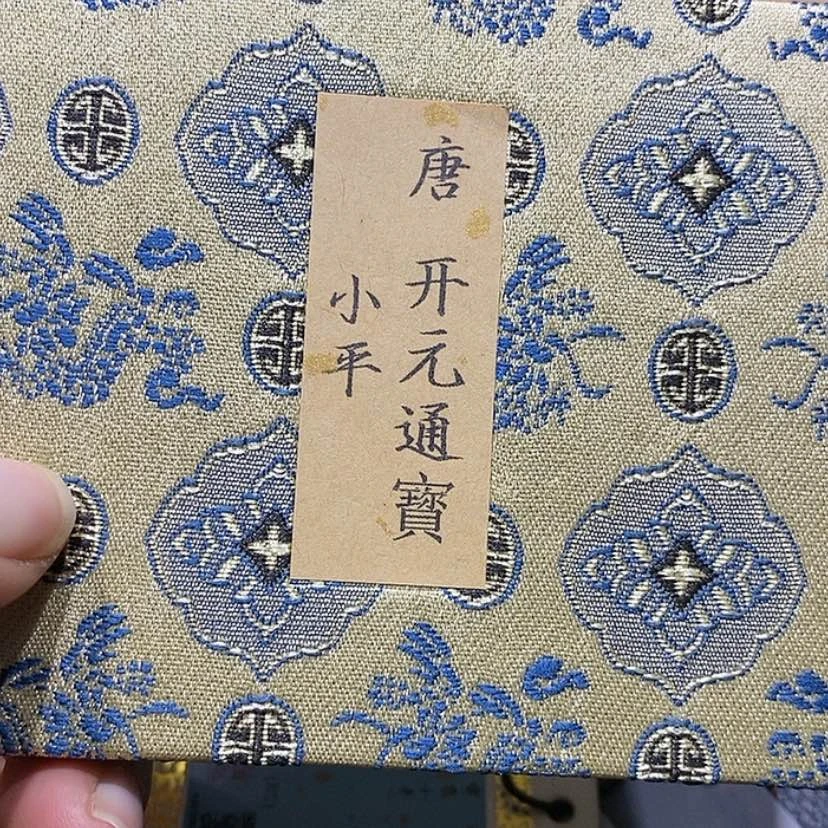 唐 开元通寳
小平